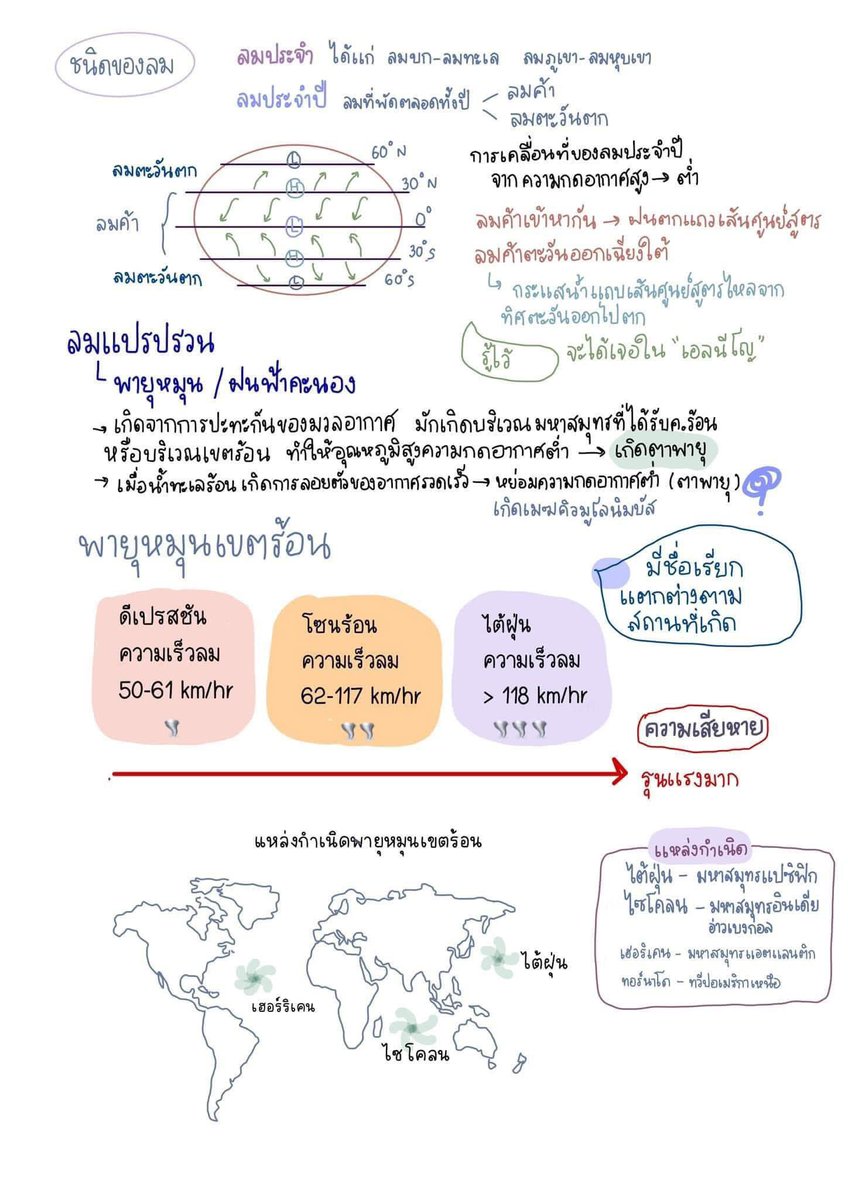 ชนิดของลม
ลมประจำ ได้แก่ ลมบก-ลมทะเล ลมภูเขา-ลมหุบเขา
ลมประจำปี ลมที่พัดตลอดทั้งปี
ลมค้า
ลมตะวันตก
60°N
30°N
0°
30°S
60°S
L
H
L
H
L
ลมตะวันตก
ลมค้า
ลมตะวันตก
การเคลื่อนที่ของลมประจำปี
จาก ความกดอากาศสูง → ต่ำ
ลมค้าเข้าหากัน → ฝนตกแถวเส้นศูนย์สูตร
ลมค้าตะวันออกเฉียงใต้
↳ กระแสน้ำแถบเส้นศูนย์สูตรไหลจาก
ทิศตะวันออกไปตก
รู้ไว้ จะได้เจอใน "เอลนีโญ"
ลมแปรปรวน
พายุหมุน / ฝนฟ้าคะนอง
→ เกิดจากการปะทะกันของมวลอากาศ มักเกิดบริเวณมหาสมุทรที่ได้รับค.ร้อน
หรือบริเวณเขตร้อน ทำให้อุณหภูมิสูงความกดอากาศต่ำ → เกิดตาพายุ
→ เมื่อน้ำทะเลร้อน เกิดการลอยตัวของอากาศรวดเร็ว → หย่อมความกดอากาศต่ำ (ตาพายุ)
เกิดเมฆคิวมูโลนิมบัส
พายุหมุนเขตร้อน
มีชื่อเรียก
แตกต่างตาม
สถานที่เกิด
ดีเปรสชัน
ความเร็วลม
50-61 km/hr
โซนร้อน
ความเร็วลม
62-117 km/hr
ไต้ฝุ่น
ความเร็วลม
> 118 km/hr
ความเสียหาย
รุนแรงมาก
แหล่งกำเนิดพายุหมุนเขตร้อน
เฮอร์ริเคน
ไซโคลน
ไต้ฝุ่น
แหล่งกำเนิด
ไต้ฝุ่น - มหาสมุทรแปซิฟิก
ไซโคลน - มหาสมุทรอินเดีย
อ่าวเบงกอล
เฮอริเคน - มหาสมุทรแอตแลนติก
ทอร์นาโด - ทวีปอเมริกาเหนือ